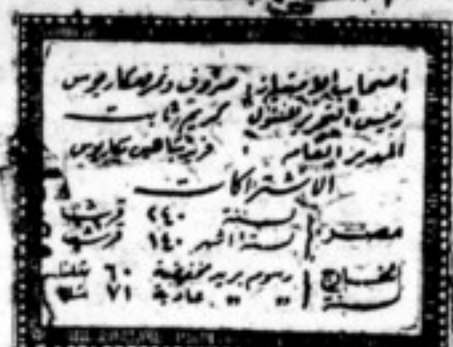 أصحاب الامتياز: صروف ونمر ومكاريوس
رئيس التحرير المسئول كريم ثابت
المدير العام: فريد شاهين مكاريوس
الاشتراكات
مصر { لسنة ٢٤٠ قرشا
لستة اشهر ١٤٠ قرشا
الخارج لسنة { رسوم بريد مخفضة ٦٠ شلنا
رسوم بريد عادية ٧١ شلنا